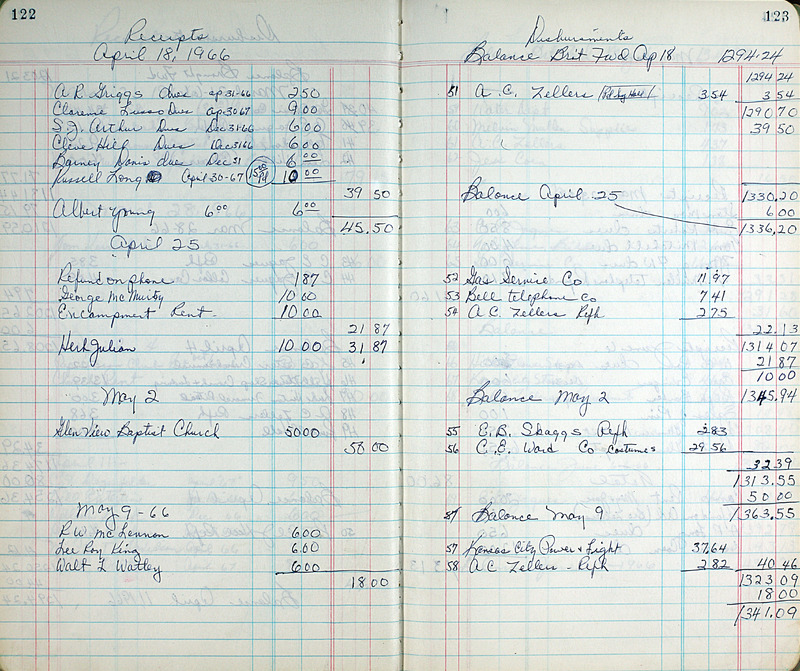 122
Receipts
April 18, 1966
A R Griggs dues ap 31-66 250
Clarence Russo Dues Ap 30 67 900
S. J. Arthur Dues Dec 31-66 600
Cleve Hick Dues Dec 31 66 600
Barney Donis dues Dec 31 6 00
Russell Long April 30-67 10 00
39 50
Albert Young 6 00 6 00
45.50
April 25
Refund on phone 187
George Mc Murtry 1000
Encampment Rent- 1000
21 87
Herb Julian 10 00 31 87
May 2
Glen View Baptist Church 5000
50 00
May 9-66
R W McLennon 600
Lee Roy King 600
Walt L Watley 600
18 00
123
Disbursments
Balance Brit Fwd Ap 18 1294.24
1294 24
51 A. C. Zellers 3.54 3 54
1290 70
39 50
Balance April 25 1330,20
6 00
1336,20
52 Gas Service Co 11.97
53 Bell telephone Co 7 41
54 A C. Zellers Rfh 275
22.13
1314 07
21 87
10 00
Balance May 2 1345,94
55 E. B. Skaggs Rfh 2.83
56 C. E. Ward Co Costumes 29.56
32 39
1313.55
50 00
Balance May 9 1363.55
57 Kansas City Power & Light 37,64
58 A C Zellers - Rfh 2.82 40 46
1323 09
18 00
1341.09